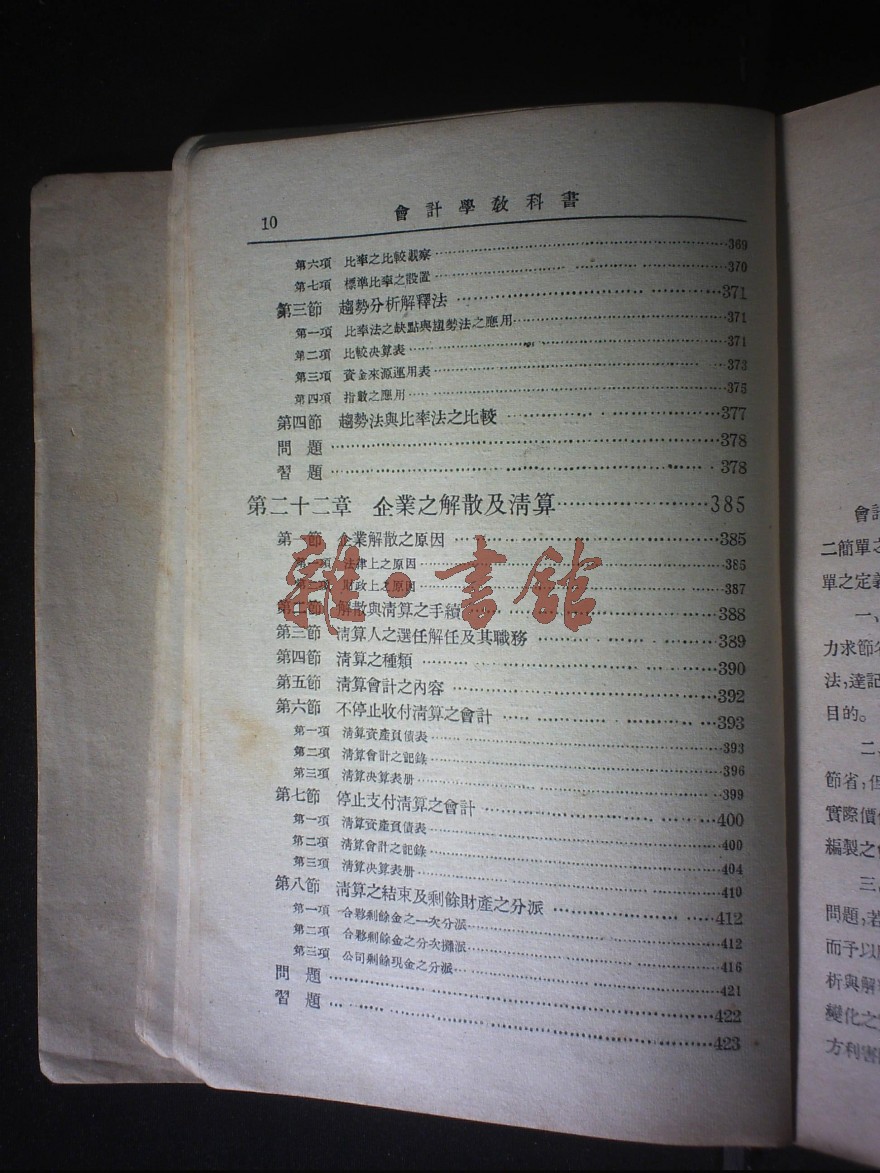 10 會計學教科書
第六項 比率之比較觀察 369
第七項 標準比率之設置 370
第三節 趨勢分析解釋法 371
第一項 比率法之缺點與趨勢法之應用 371
第二項 比較决算表 371
第三項 資金來源運用表 373
第四項 指數之應用 375
第四節 趨勢法與比率法之比較 377
問題 378
習題 378
第二十二章 企業之解散及淸算 385
第一節 企業解散之原因 385
第一項 法律上之原因 385
第二項 財政上之原因 387
第二節 解散與淸算之手續 388
第三節 淸算人之選任解任及其職務 389
第四節 淸算之種類 390
第五節 淸算會計之內容 392
第六節 不停止收付淸算之會計 393
第一項 淸算資產負債表 393
第二項 淸算會計之記錄 396
第三項 淸算决算表册 399
第七節 停止支付淸算之會計 400
第一項 淸算資產負債表 400
第二項 淸算會計之記錄 404
第三項 淸算决算表册 410
第八節 淸算之結束及剩餘財產之分派 412
第一項 合夥剩餘金之一次分派 412
第二項 合夥剩餘金之分次攤派 416
第三項 公司剩餘現金之分派 421
問題 422
習題 423
雜·書館
會計
二簡單之
單之定義
一、
力求節省
法，達記
目的。
二、
節省，但
實際價
編製之
三、
問題，若
而予以
析與解
變化之
方利害